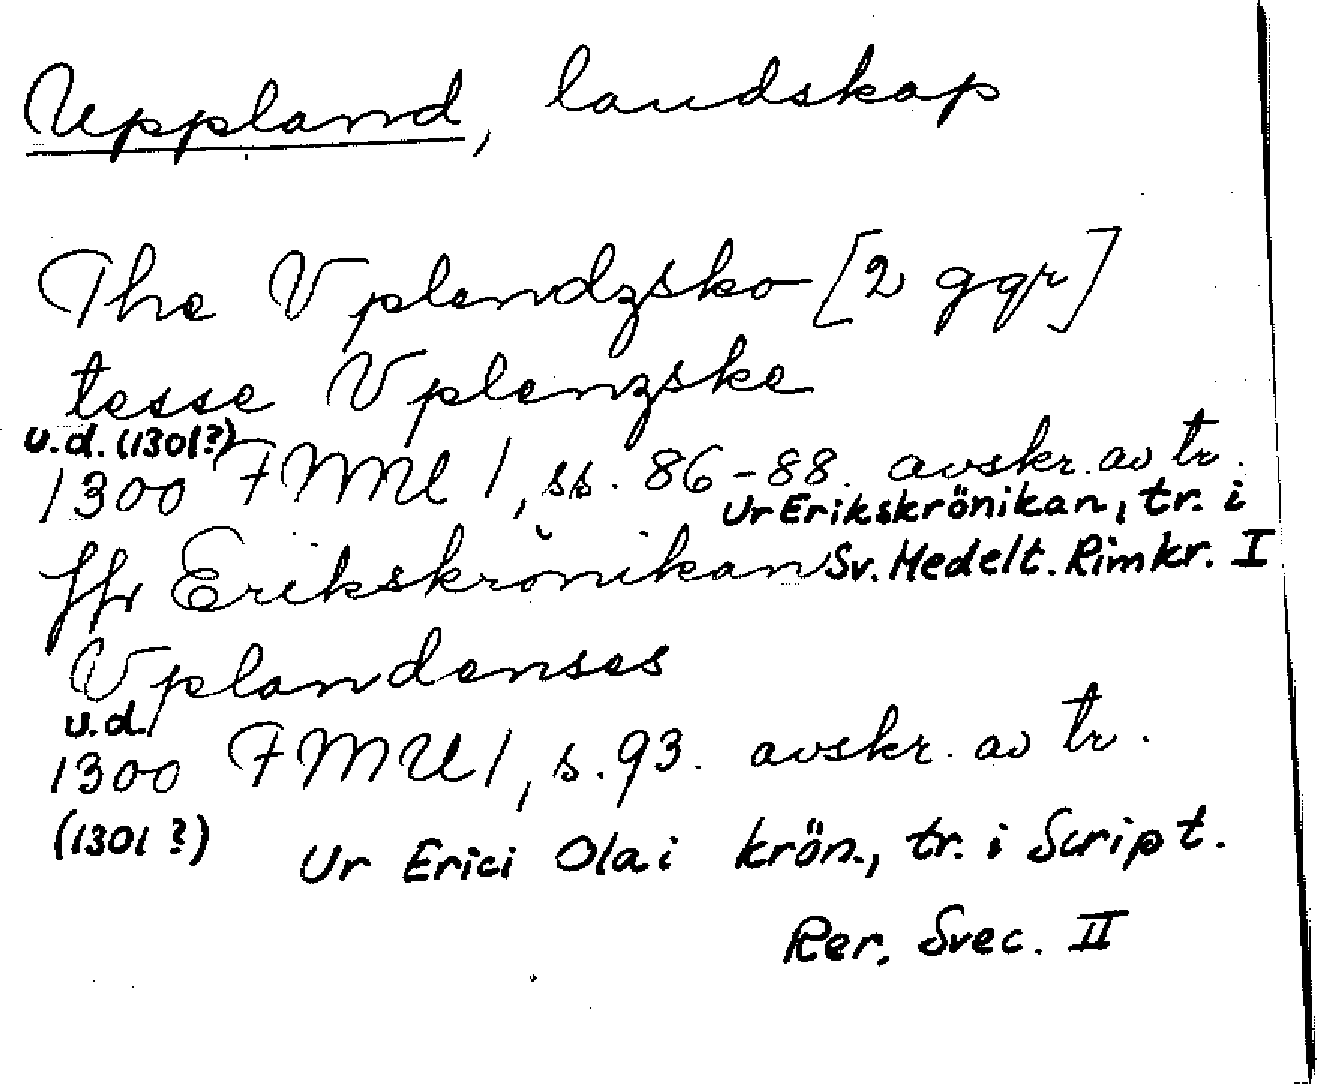 Uppland, landskap
The Vplendzsko [2 ggr]
tesse Vplenzske
u.d. (1301?)
1300 FMU 1, ss. 86-88. avskr. av tr.
Ur Erikskrönikan, tr. i
Erikskrönikan Sv. Medelt. Rimkr. I
Vplandenses
u.d.
1300 FMU 1, s. 93. avskr. av tr.
(1301?)
Ur Erici Olai krön., tr. i Script.
Rer. Svec. II